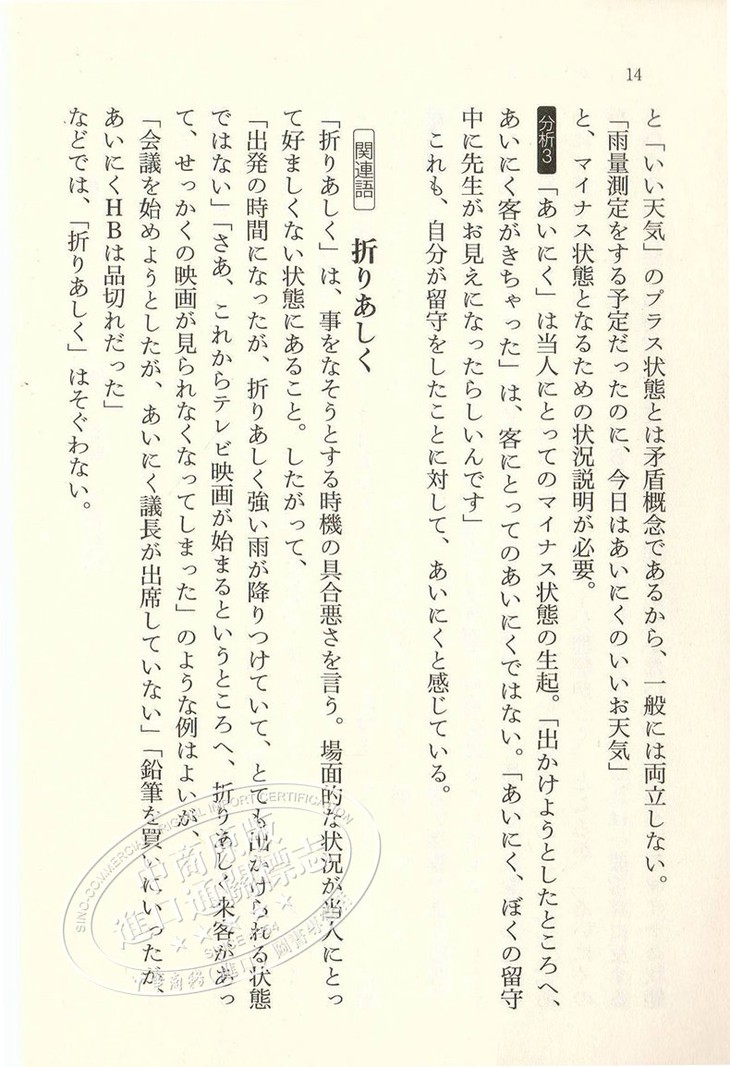 14
と「いい天気」のプラス状態とは矛盾概念であるから、一般には両立しない。
「雨量測定をする予定だったのに、今日はあいにくのいいお天気」
と、マイナス状態となるための状況説明が必要。
分析3 「あいにく」は当人にとってのマイナス状態の生起。「出かけようとしたところへ、
あいにく客がきちゃった」は、客にとってのあいにくではない。「あいにく、ぼくの留守
中に先生がお見えになったらしいんです」
これも、自分が留守をしたことに対して、あいにくと感じている。
関連語 折りあしく
「折りあしく」は、事をなそうとする時機の具合悪さを言う。場面的な状況が当人にとっ
て好ましくない状態にあること。したがって、
「出発の時間になったが、折りあしく強い雨が降りつけていて、とても出かけられる状態
ではない」「さあ、これからテレビ映画が始まるというところへ、折りあしく来客があっ
て、せっかくの映画が見られなくなってしまった」のような例はよいが、
「会議を始めようとしたが、あいにく議長が出席していない」「鉛筆を買いにいったが、
あいにくHBは品切れだった」
などでは、「折りあしく」はそぐわない。
SINO-COMMERCIAL ORIGINAL IMPORT CERTIFICATION
中商原版
進口通關標志
SINCE